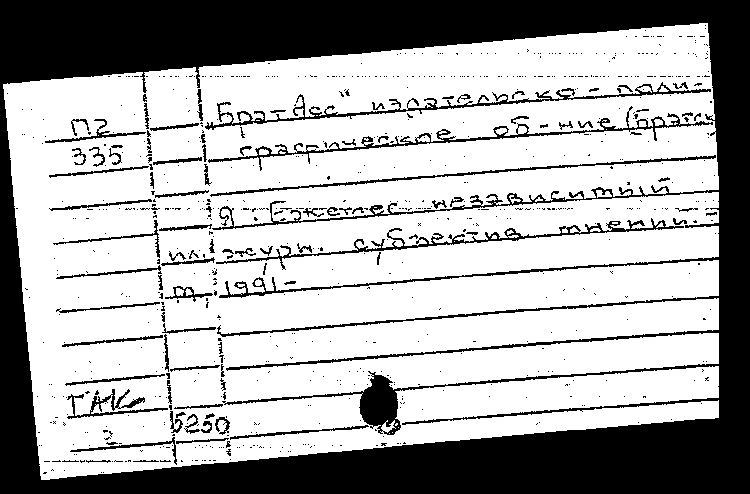 П2
335
„БратАсс" издательско-поли-
графическое об-ние (Братск
Я: Ежемес. независимый
ил. журн. субъектив. мнений. -
м, 1991-
5250